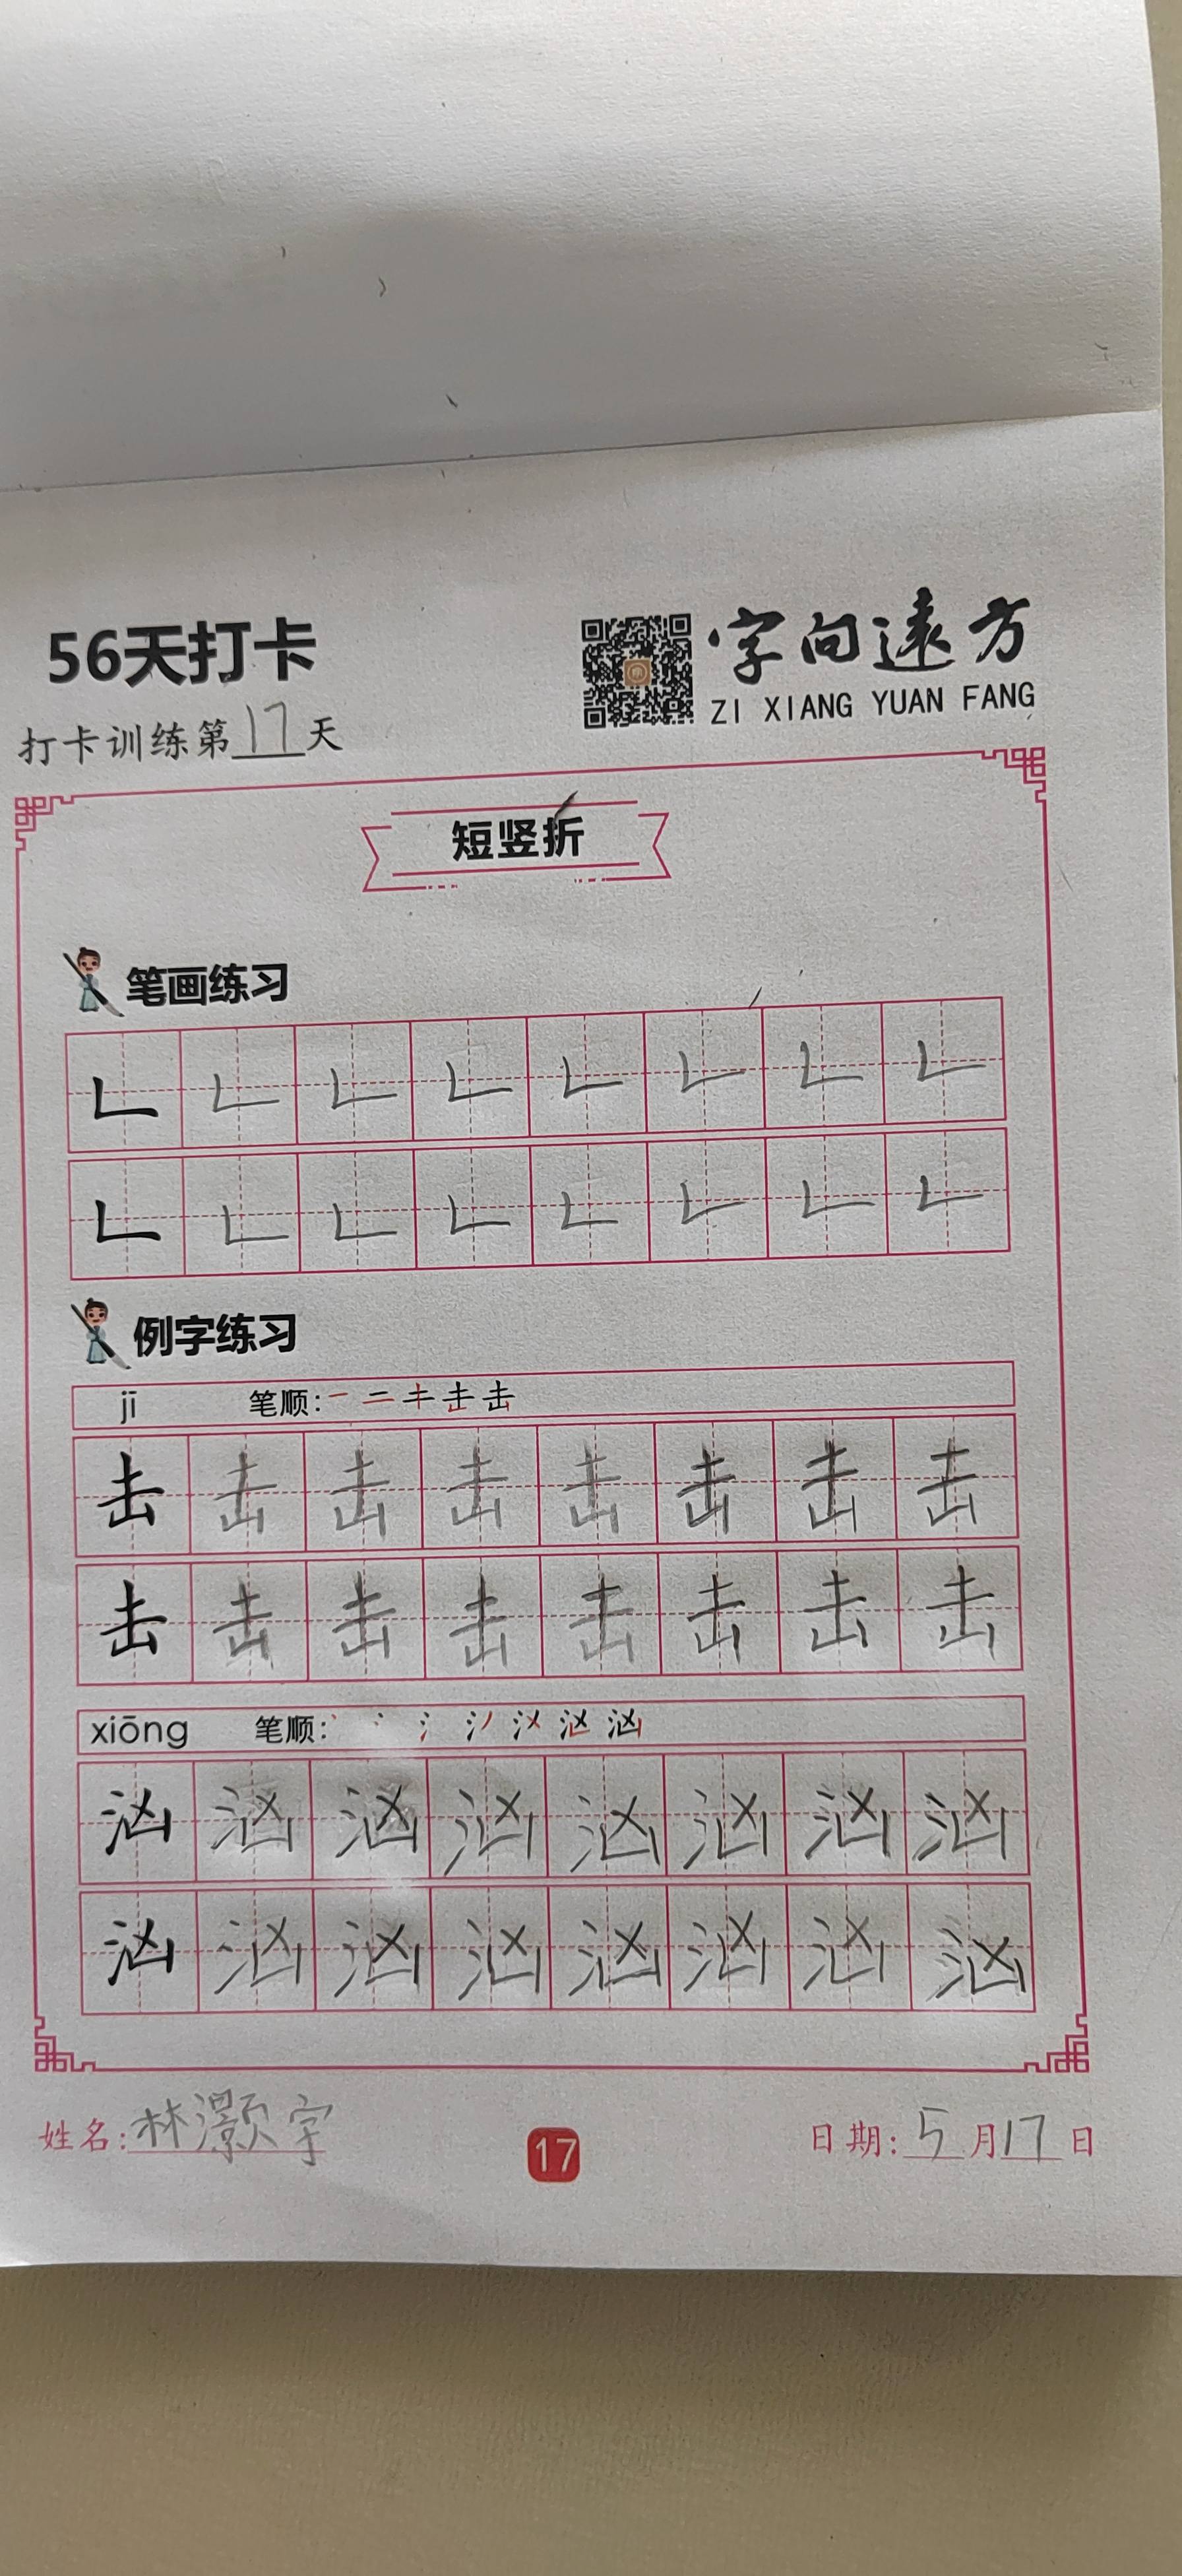 56天打卡
字向远方
ZI XIANG YUAN FANG
打卡训练第17天
短竖折
笔画练习
𠃊 𠃊 𠃊 𠃊 𠃊 𠃊 𠃊 𠃊
𠃊 𠃊 𠃊 𠃊 𠃊 𠃊 𠃊 𠃊
例字练习
jī 笔顺: 一 二 キ 击 击
击 击 击 击 击 击 击 击
击 击 击 击 击 击 击 击
xiōng 笔顺: 丶 冫 氵 汹
汹 汹 汹 汹 汹 汹 汹 汹
汹 汹 汹 汹 汹 汹 汹 汹
姓名:林灏宇
17
日期:5月17日